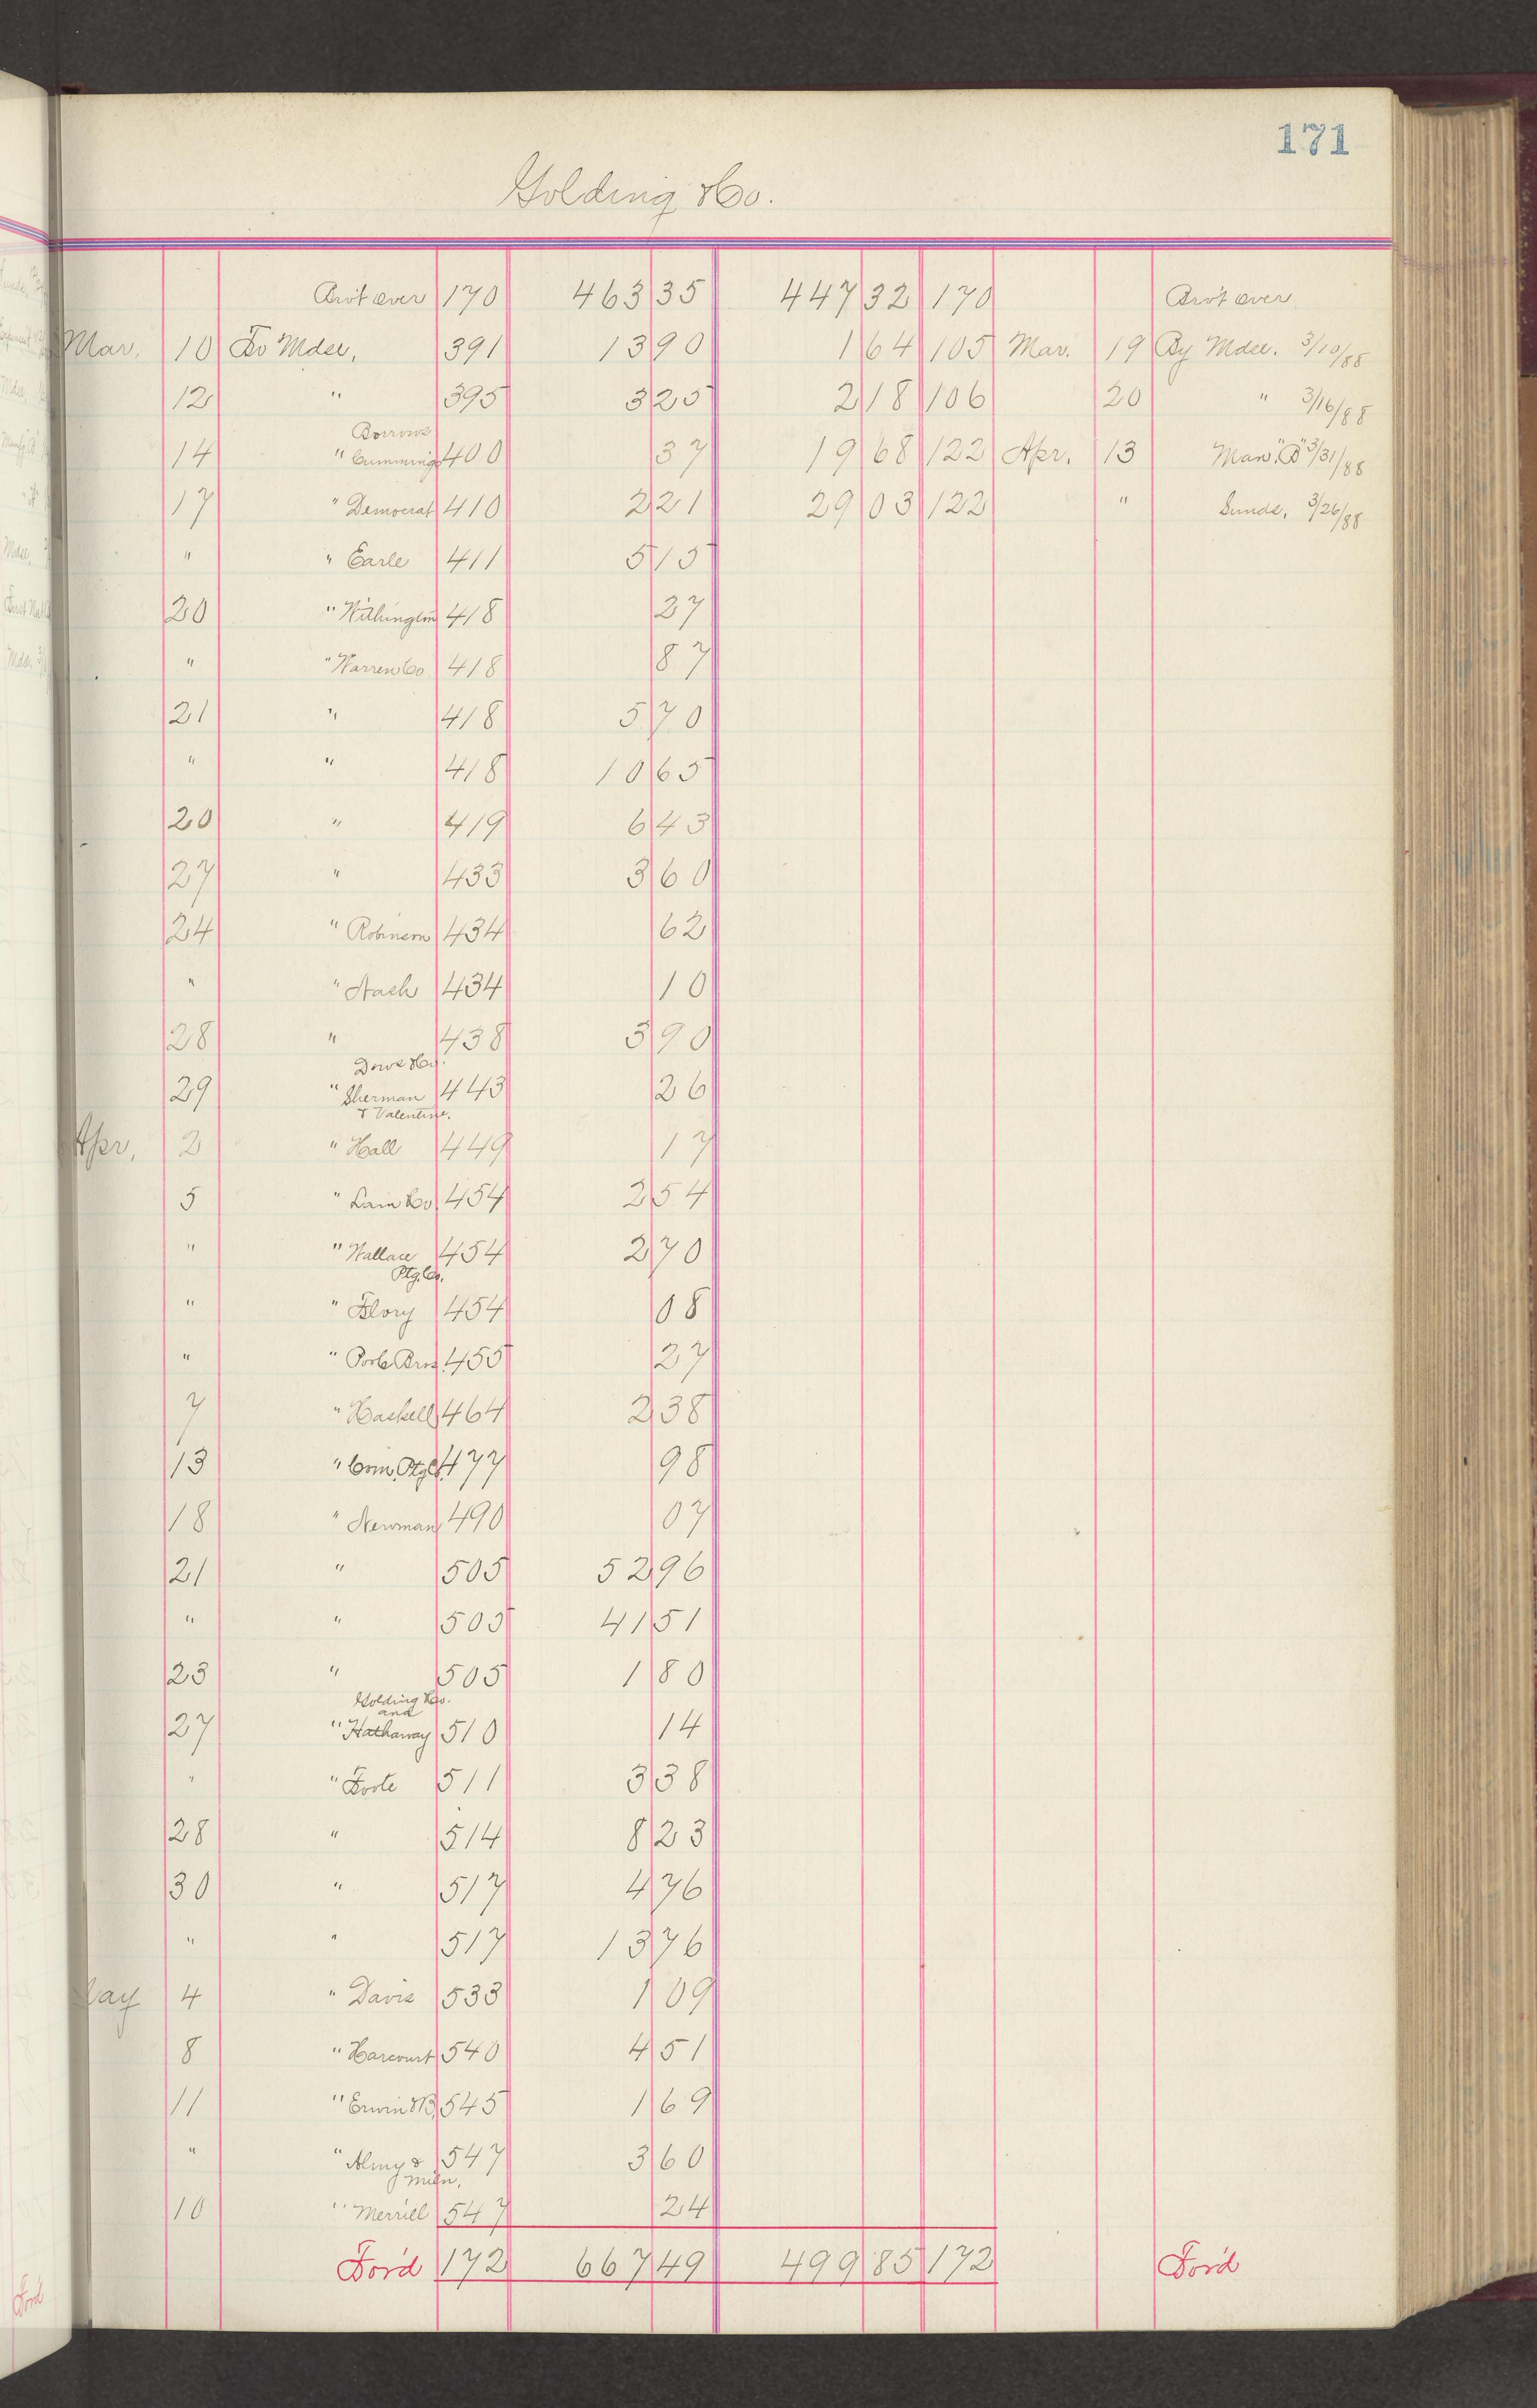 171
Golding & Co.
Bro't over 170 463 35 447 32 170 Bro't over
Mar. 10 To Mdse. 391 13 90 1 64 105 Mar. 19 By Mdse. 3/10/88
12 " 395 3 25 2 18 106 20 " 3/16/88
Borrows
14 " Cummings 400 37 19 68 122 Apr. 13 Man. "B" 3/31/88
17 " Democrat 410 2 21 29 03 122 " Sunds. 3/26/88
" " Earle 411 5 15
20 " Withington 418 27
" " Warren Co 418 87
21 " 418 5 70
" " 418 10 65
20 " 419 6 43
27 " 433 3 60
24 " Robinson 434 62
" " Nash 434 10
28 " 438 3 90
Dows & Co.
29 " Sherman 443 26
& Valentine.
Apr. 2 " Hall 449 17
5 " Lain Co 454 2 54
" " Wallace 454 2 70
Ptg. Co.
" " Flory 454 08
" " Poole Bros. 455 27
7 " Haskell 464 2 38
13 " Com. Ptg Co. 477 98
18 " Newman 490 07
21 " 505 52 96
" " 505 41 51
23 " 505 1 80
Golding & Co.
and
27 " Hathaway 510 14
" " Foote 511 3 38
28 " 514 8 23
30 " 517 4 76
" " 517 13 76
ay 4 " Davis 533 1 09
8 " Harcourt 540 4 51
11 " Erwin & B. 545 1 69
" " Almy & 547 3 60
Miln.
10 " Merrill 547 24
For'd 172 667 49 499 85 172 For'd
For'd